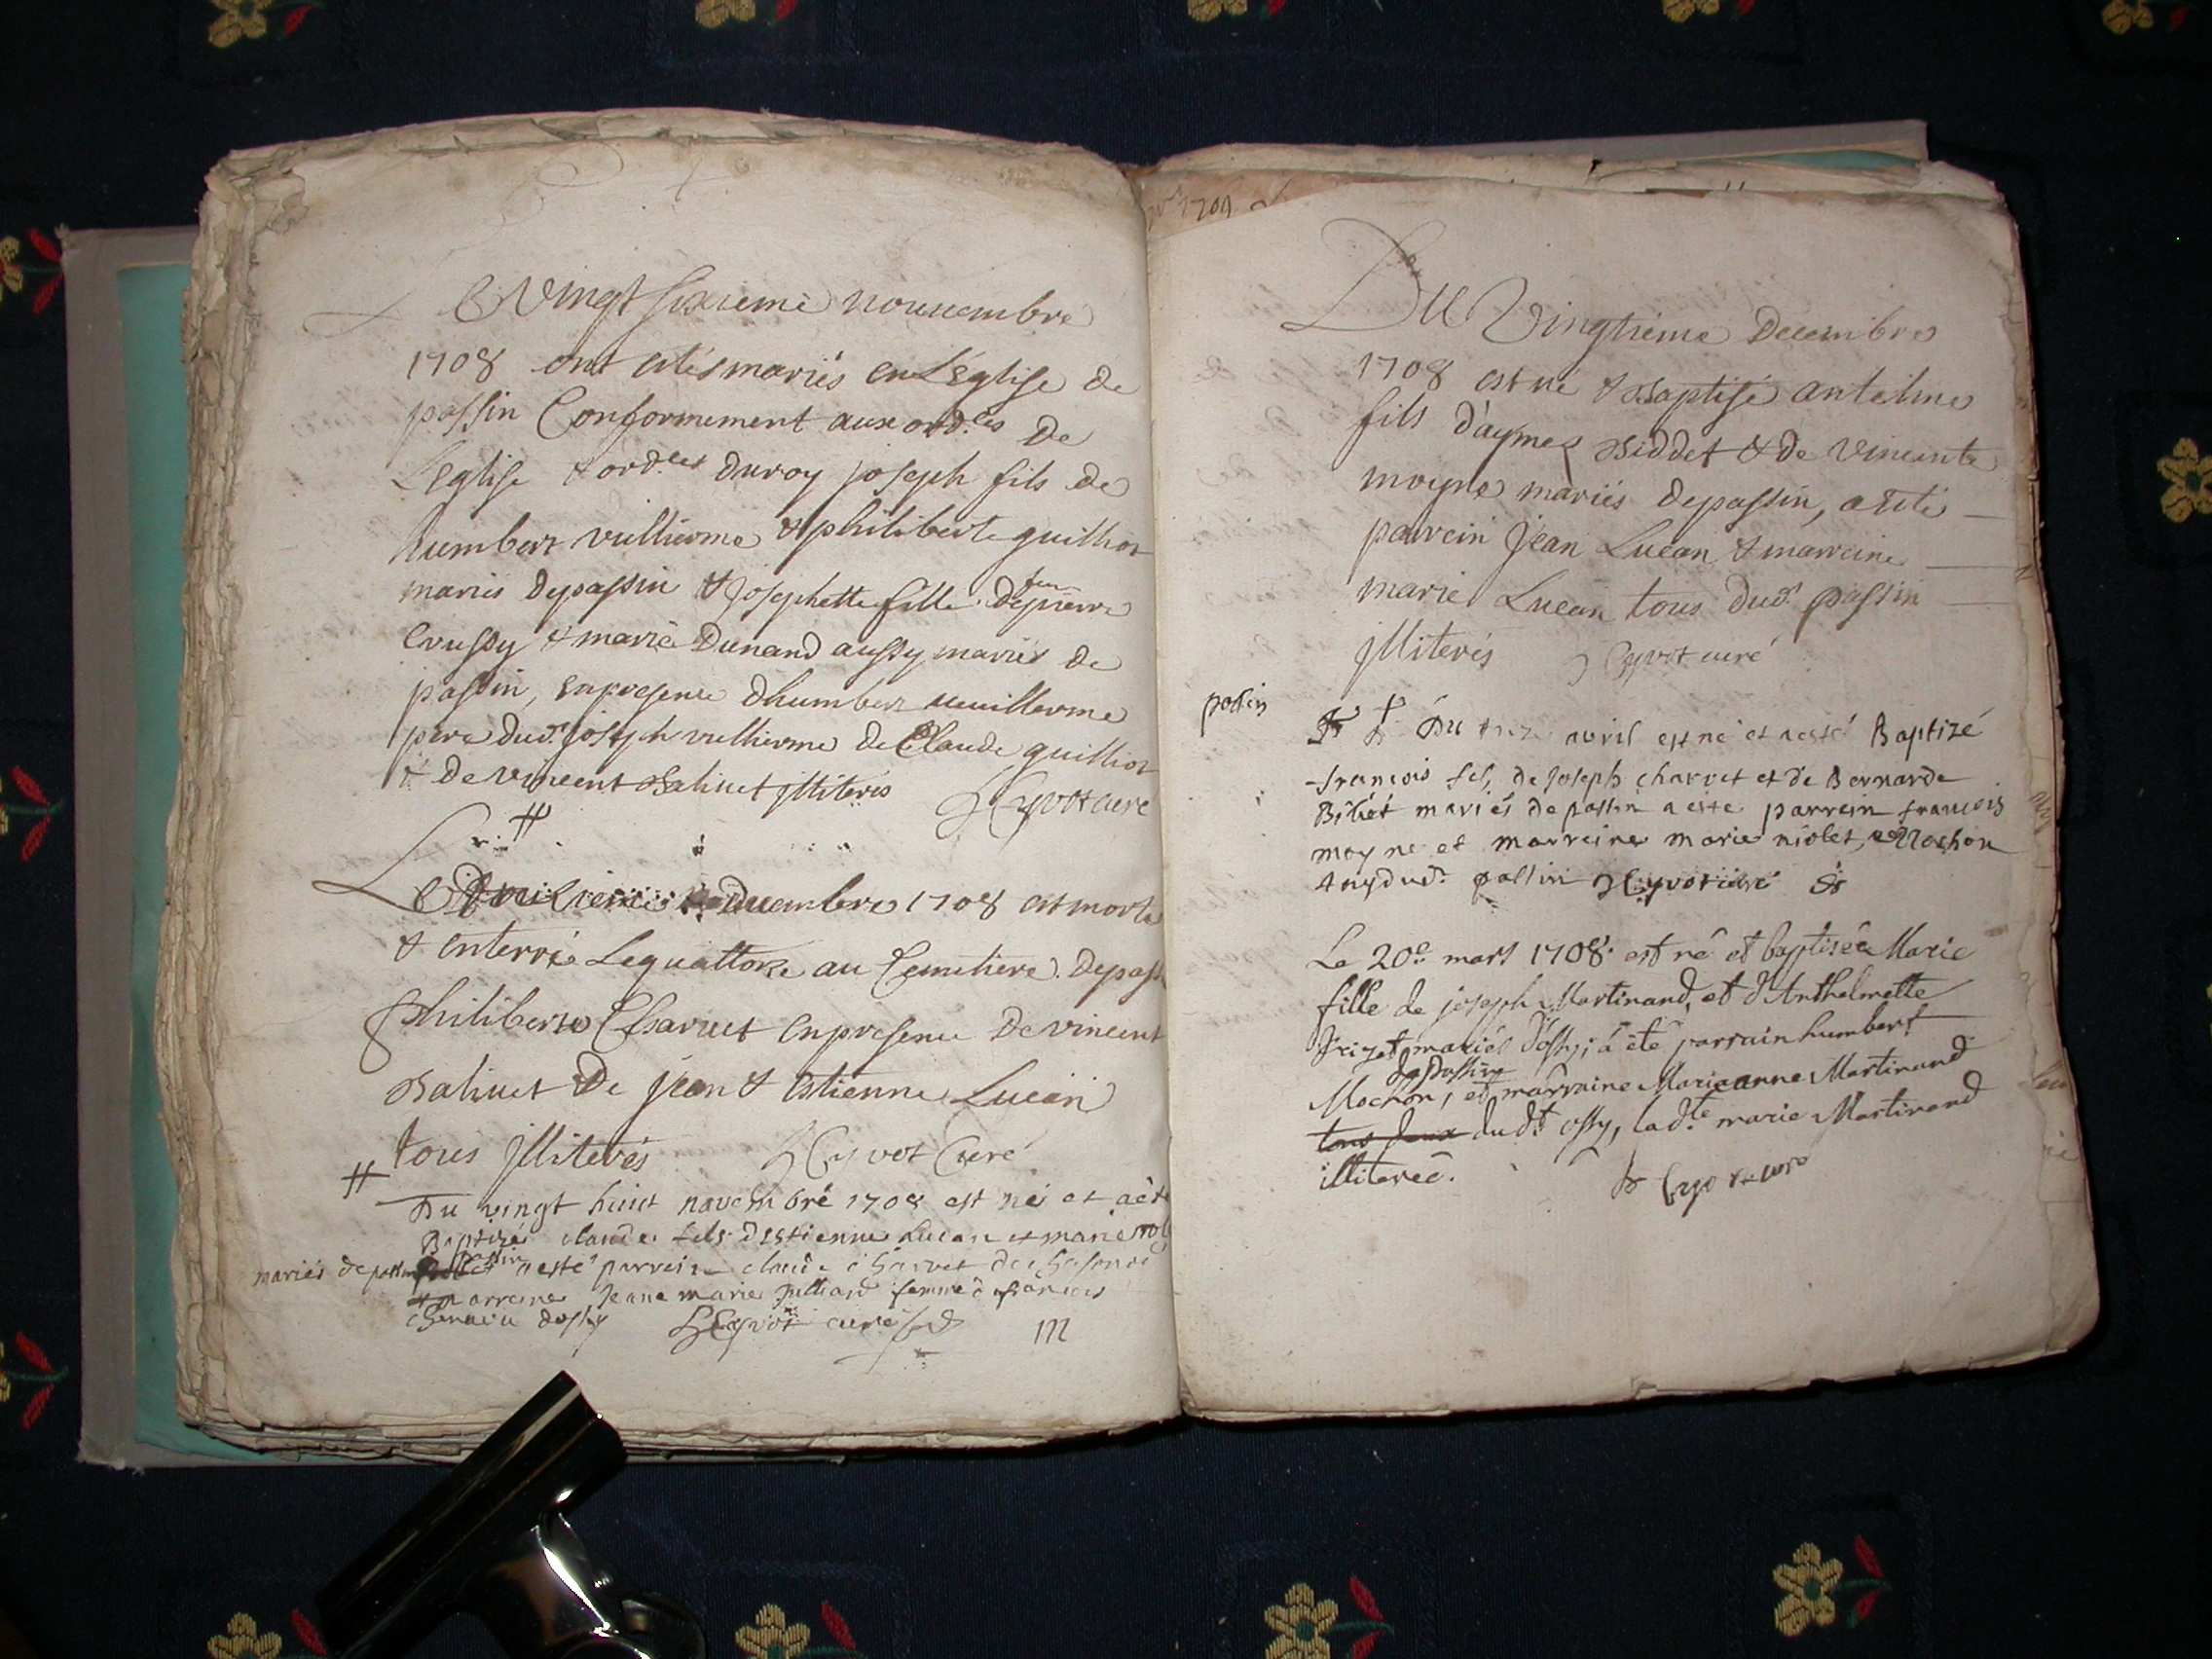 Le Vingt sixieme nouuembre
1708 ont estés mariés en L'Eglise de
passin Conformement aux ord.ces De
L'Eglise & ord.ces du roy joseph fils de
humbert vullierme & philiberte guilliot
mariés de passin & josephette fille de feu pierre
Crussy & marie Dunand aussy mariés de
passin, en presence d'humbert uuillerme
pere dud.t joseph vullierme de Claude guilliot
& De vincent Baliuet jlliterés Cyvot curé
Le Decembre 1708 est morte
& enterré Le quattorze au Cemitiere de pass
philiberte Charuet en presence De vincent
Baliuet De jean & Estienne Lucain
tous jlliterés Cyvot Curé
Du vingt huict novembre 1708 est né et a esté
Baptizé claude fils d'estienne Lucan et marie
mariés de passin a esté parrein claude charvet de
& marreine jeane marie julliard femme à francois
d'ossy Cyvot curé
m
1709
Du Vingtième Decembre
1708 est né & Baptisé antelme
fils d'aymes Biddet & de vincente
moyne mariés de passin, a été
parrein jean Lucan & marreine
marie Lucan tous dud.t passin
jlliterés Cyvot curé
passin
Du avril est né et a esté Baptizé
francois fils de joseph charvet et de Bernarde
mariés de passin a esté parrein francois
moyne et marreine marie niolet,
tous dud.t passin Cyvot curé
Le 20.e mars 1708 est né et baptisée Marie
fille de joseph Martinand, et d'Anthelmette
mariés d'ossy; a été parrain humbert
de Passin
Mochon, et marraine Marie anne Martinand
tous deux dud.t ossy, lad.te marie Martinand
illiterée. Cyvot curé